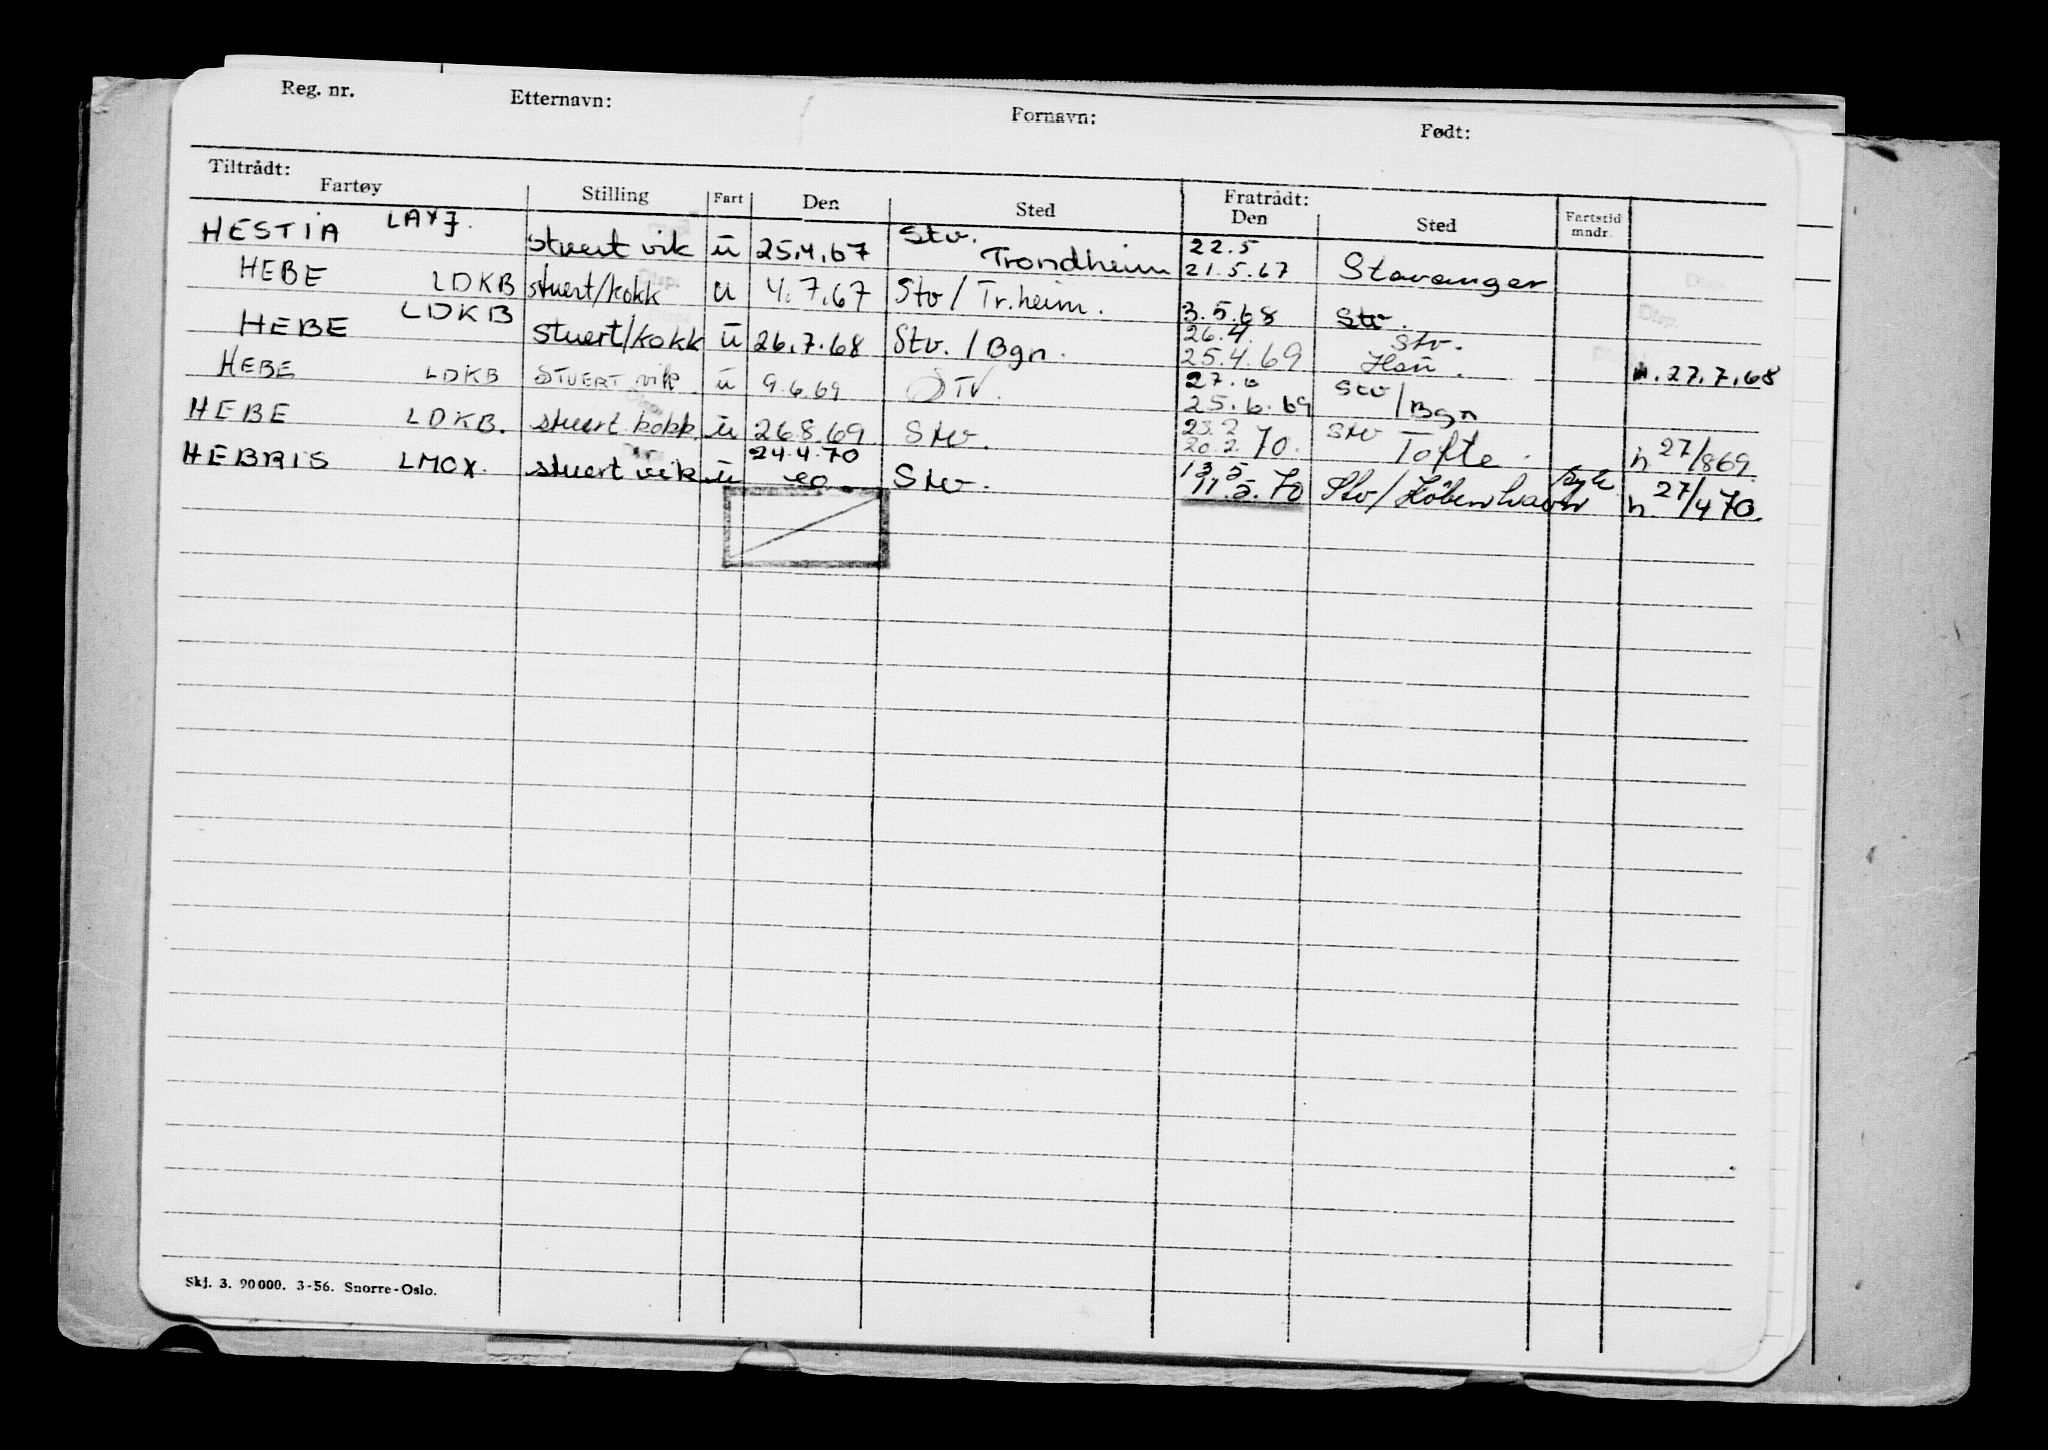 Reg. nr. Etternavn: Fornavn: Født:
Tiltrådt: Fratrådt:
Fartøy Stilling Fart Den Sted Den Sted Fartstid mndr.
HESTIA LAYJ. stuert vik u 25.4.67 Stv. Trondheim 22.5 21.5.67 Stavanger
HEBE LDKB stuert/kokk u 4.7.67 Stv / Tr.heim. 3.5.68 Stv.
HEBE LDKB stuert/kokk u 26.7.68 Stv. / Bgn. 26.4. 25.4.69 Stv. n. 27.7.68
HEBE LDKB STUERT vik. u 9.6.69 STV. 27.6 25.6.69 Stv / Bgn
HEBE LDKB. stuert kokk u 26.8.69 Stv. 23.2 20.2.70. Stv Tofte. h 27/869.
HEBRIS LMOX. stuert vik u 24.4.70 Stv. 13.5 11.5.70 Stv / København syk h 27/470.
Skj. 3. 90 000. 3-56. Snorre-Oslo.